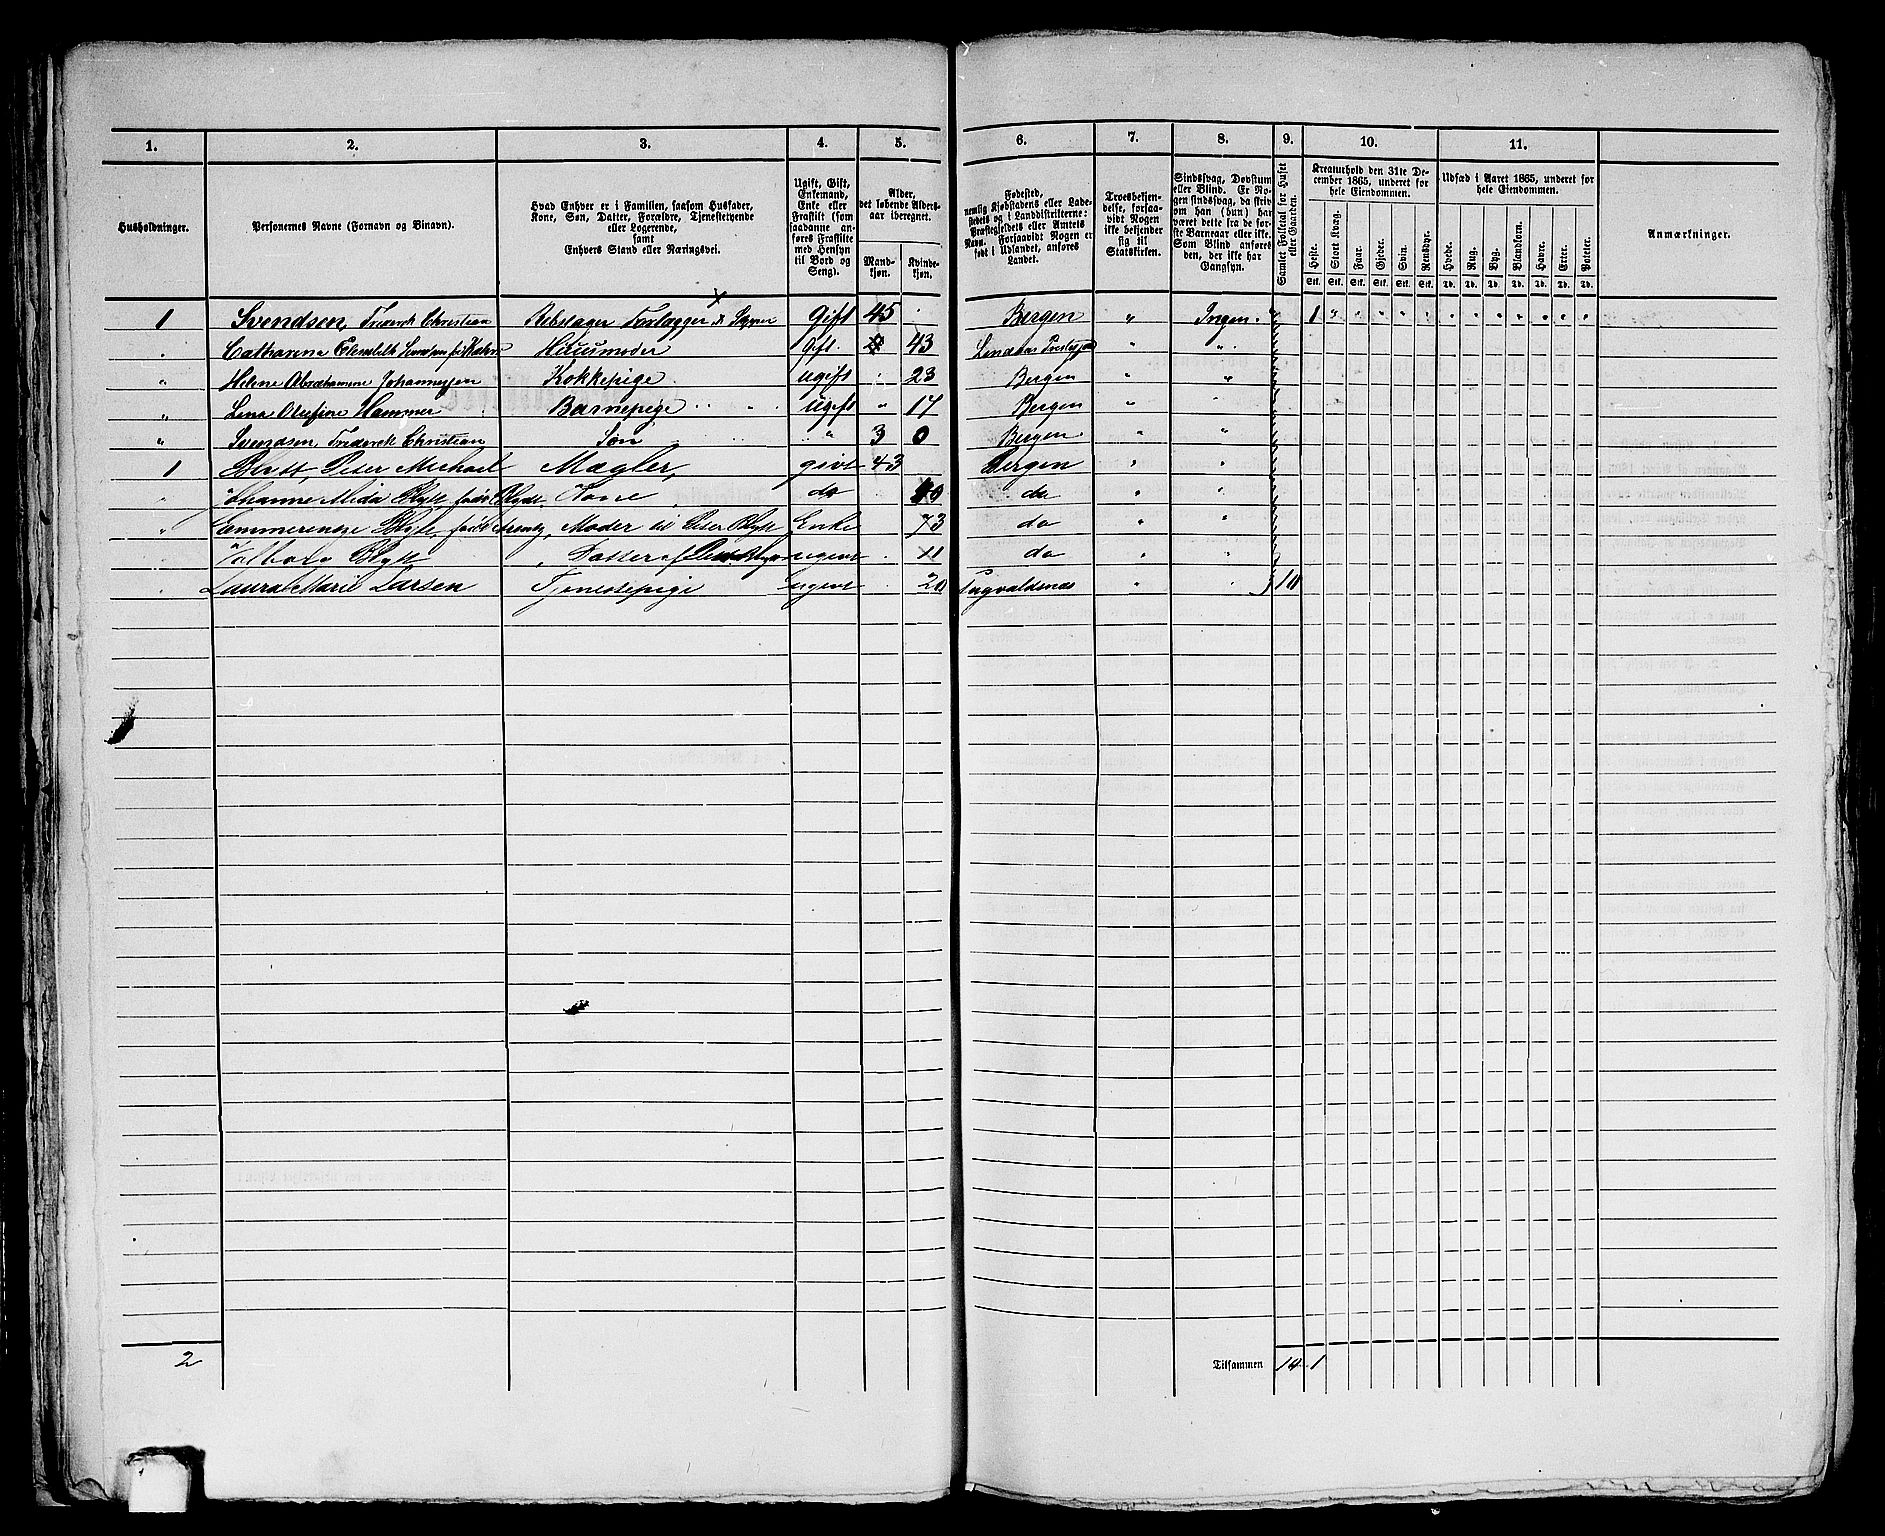 1. 2. 3. 4. 5. 6. 7. 8. 9. 10. 11.
Husholdninger.
Personernes Navne (Fornavn og Binavn).
Hvad Enhver er i Familien, saasom Husfader,
Kone, Søn, Datter, Forældre, Tjenestetyende
eller Logerende,
samt
Enhvers Stand eller Næringsvei.
Ugift, Gift,
Enkemand,
Enke eller
Fraskilt (som
saadanne an-
føres Fraskilte
med Hensyn
til Bord og
Seng).
Alder,
det løbende Alders-
aar iberegnet.
Mand-
kjøn.
Kvinde-
kjøn.
Fødested,
nemlig Kjøbstadens eller Lade-
stedets og i Landdistrikterne:
Præstegjeldets eller Amtets
Navn. Forsaavidt Nogen er
født i Udlandet, anføres
Landet.
Troesbekjen-
delse, forsaa-
vidt Nogen
ikke bekjender
sig til
Statskirken.
Sindssvag, Døvstum
eller Blind. Er No-
gen sindssvag, da skriv
om han (hun) har
været dette fra de før-
ste Barneaar eller ikke.
Som Blind anføres
den, der ikke har
Gangsyn.
Samlet Folketal for Huset
eller Gaarden.
Kreaturhold den 31te De-
cember 1865, underet for
hele Eiendommen.
Heste. Stort Kvæg. Faar. Gjeder. Svin. Rensdyr.
Stk. Stk. Stk. Stk. Stk. Stk.
Udsæd i Aaret 1865, underet for
hele Eiendommen.
Hvede. Rug. Byg. Blandkorn. Havre. Erter. Poteter.
Td. Td. Td. Td. Td. Td. Td.
Anmærkninger.
1 Svendsen, Frederik Christian Rebslager Forlægger & Skipper Gift 45 Bergen " Ingen 1 " " " " " " " " " " " "
Catharena Elesabeth Svendsen Huusmoder Gift 43 Lindaas Prestegjeld " "
" Helene Abrahamine Johannessen Kokkepige ugift 23 Bergen " "
" Lena Olufine Hammer Barnepige ugift " 17 Bergen " "
" Svendsen Frederek Christian Søn " 3 0 Bergen " "
1 Blytt, Peter Michael Mægler, givt 43 Bergen " "
Blytt, født Blydt, Kone do 40 do " "
" Blytt, født Arentz, Moder til Peter Blytt Enke 73 do " "
Valborg Blytt Datter af Peter Blytt ugivt 11 do " "
Laura Marie Larsen Tjenestepige ugivt 20 Ingvaldsnæs " " 10
2 Tilsammen 10 1